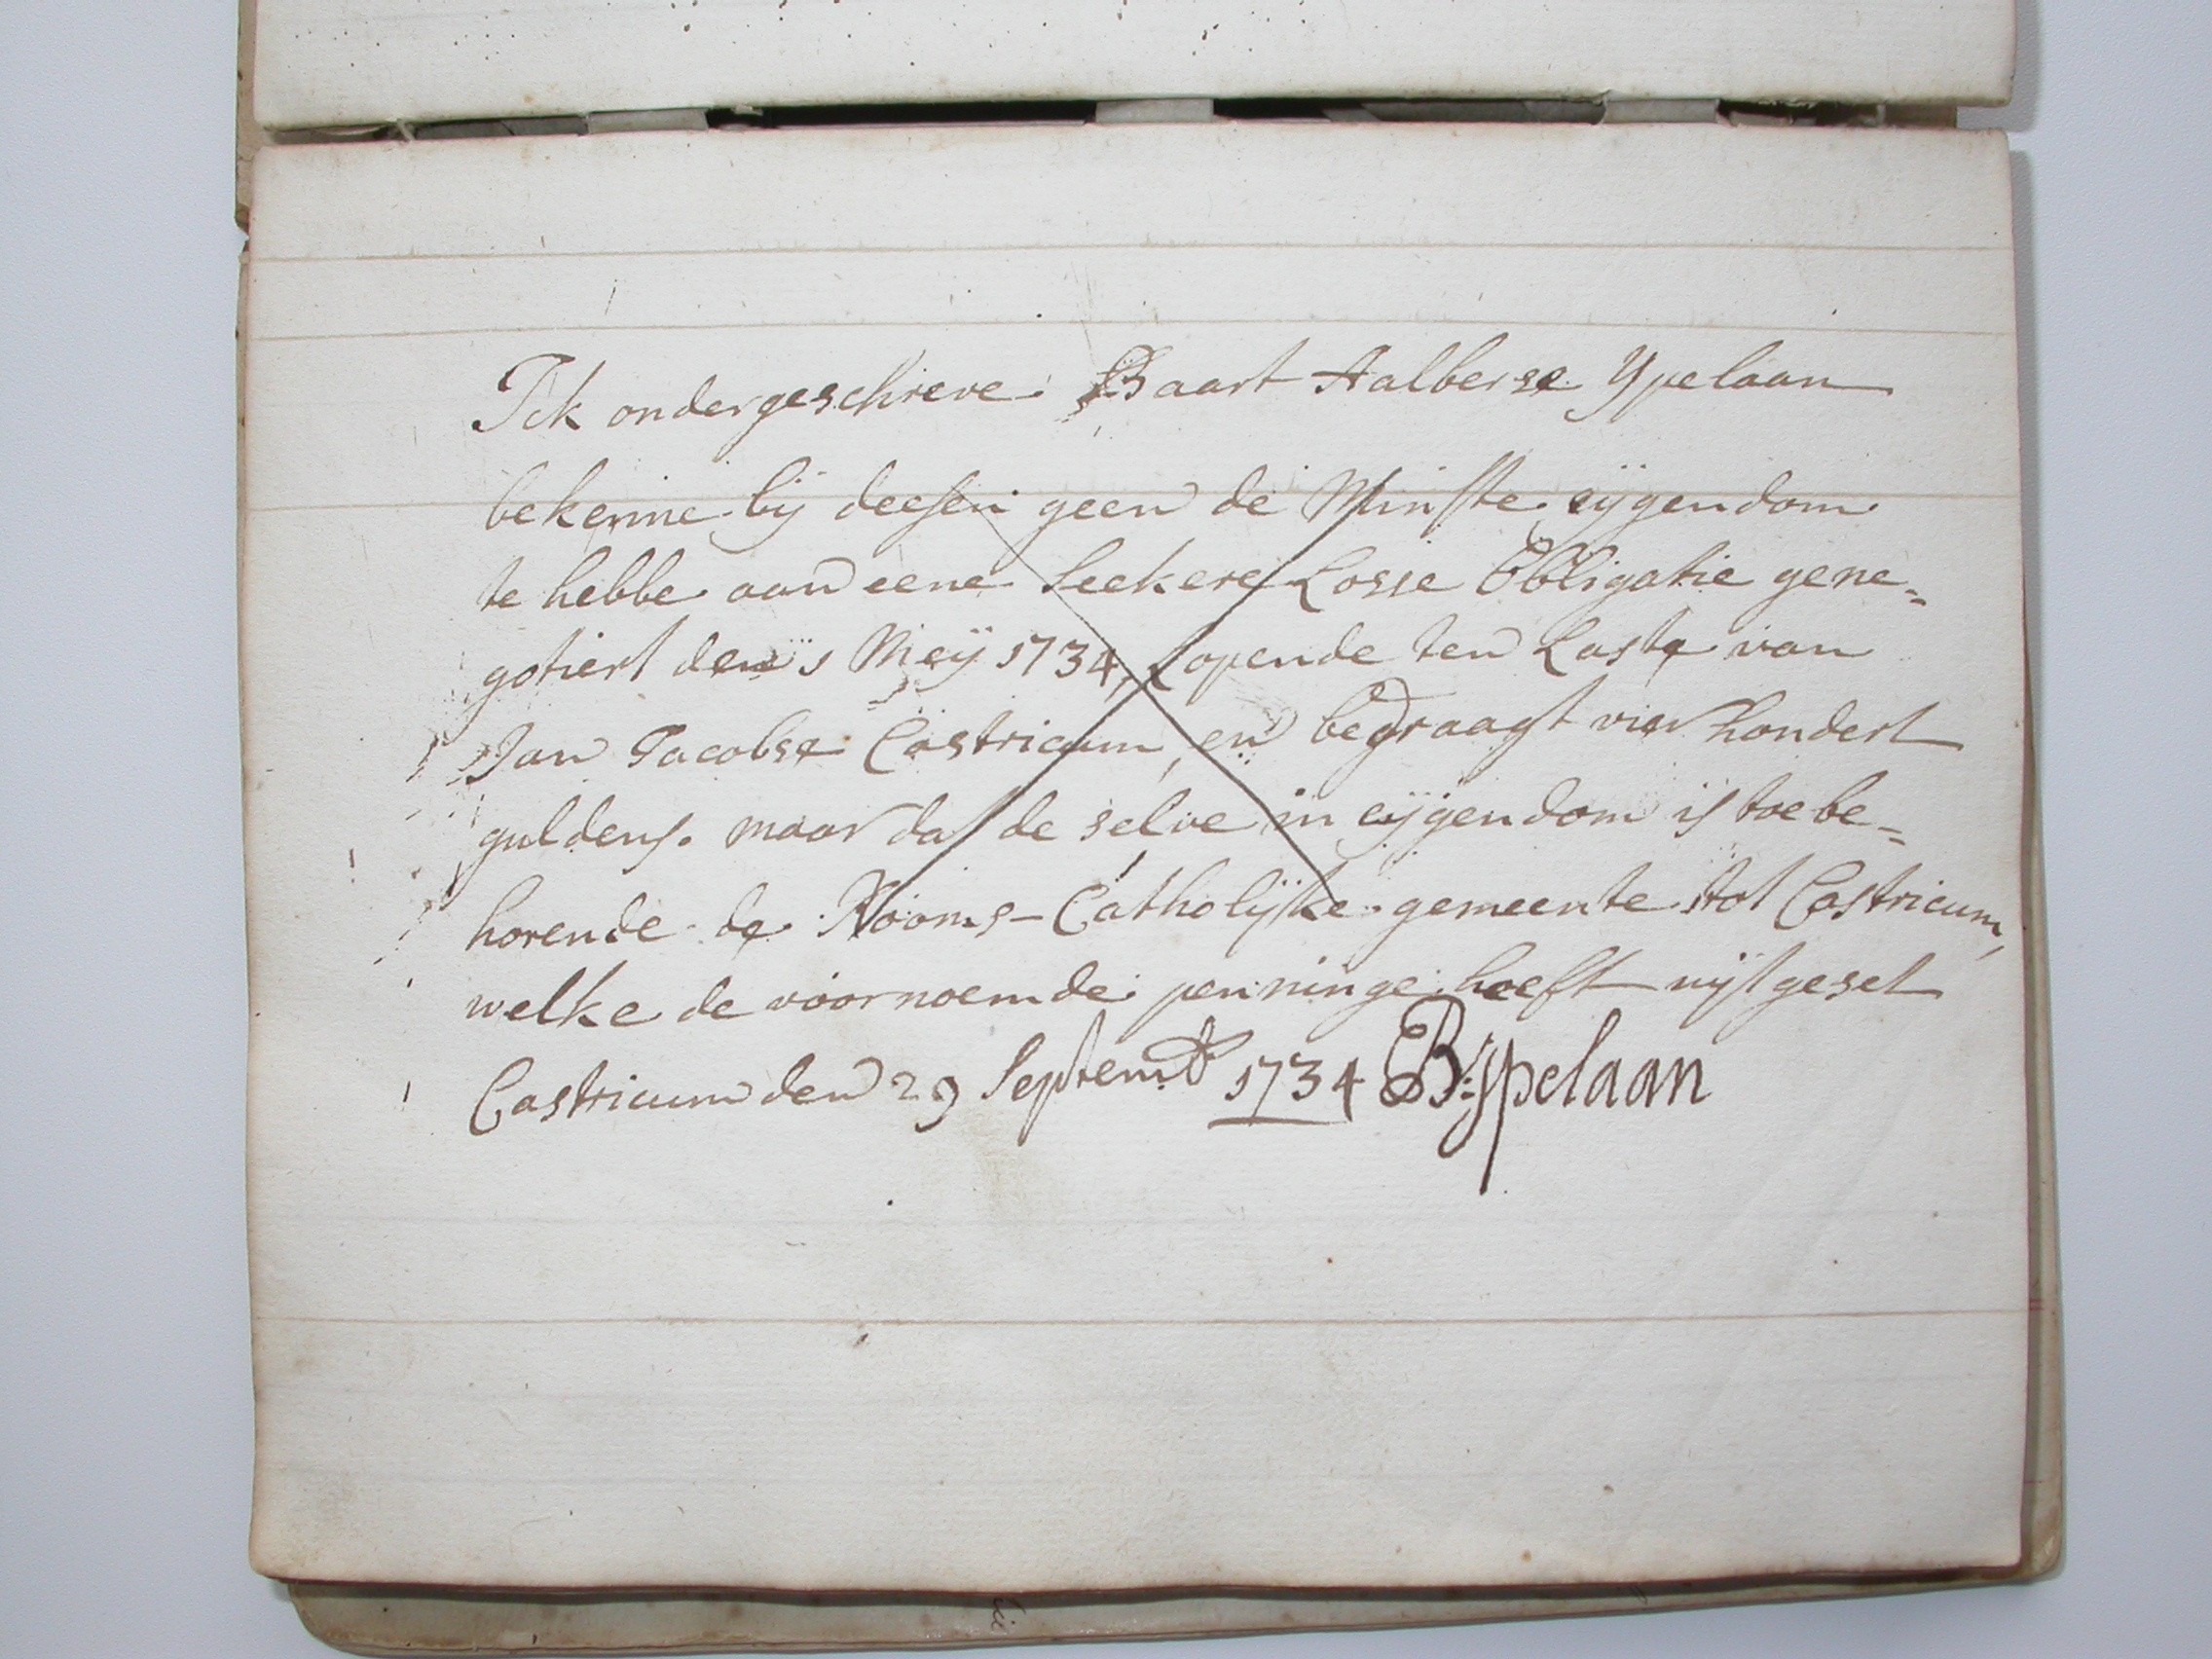 Ick ondergeschreve Baart Aalberse Ypelaan
bekenne bij deesen geen de Minste eijgendom
te hebbe aan eene seekere Losse Obligatie gene=
gotiert den 1 Meij 1734, Lopende ten Laste van
Jan Jacobse Castricum, en bedraagt vier hondert
guldens. maar dat de selve in eijgendom is toe be=
horende de Rooms-Catholijke gemeente tot Castricum,
welke de voornoemde penninge heeft uijtgeset
Castricum den 29 Septembr 1734 B:Ypelaan